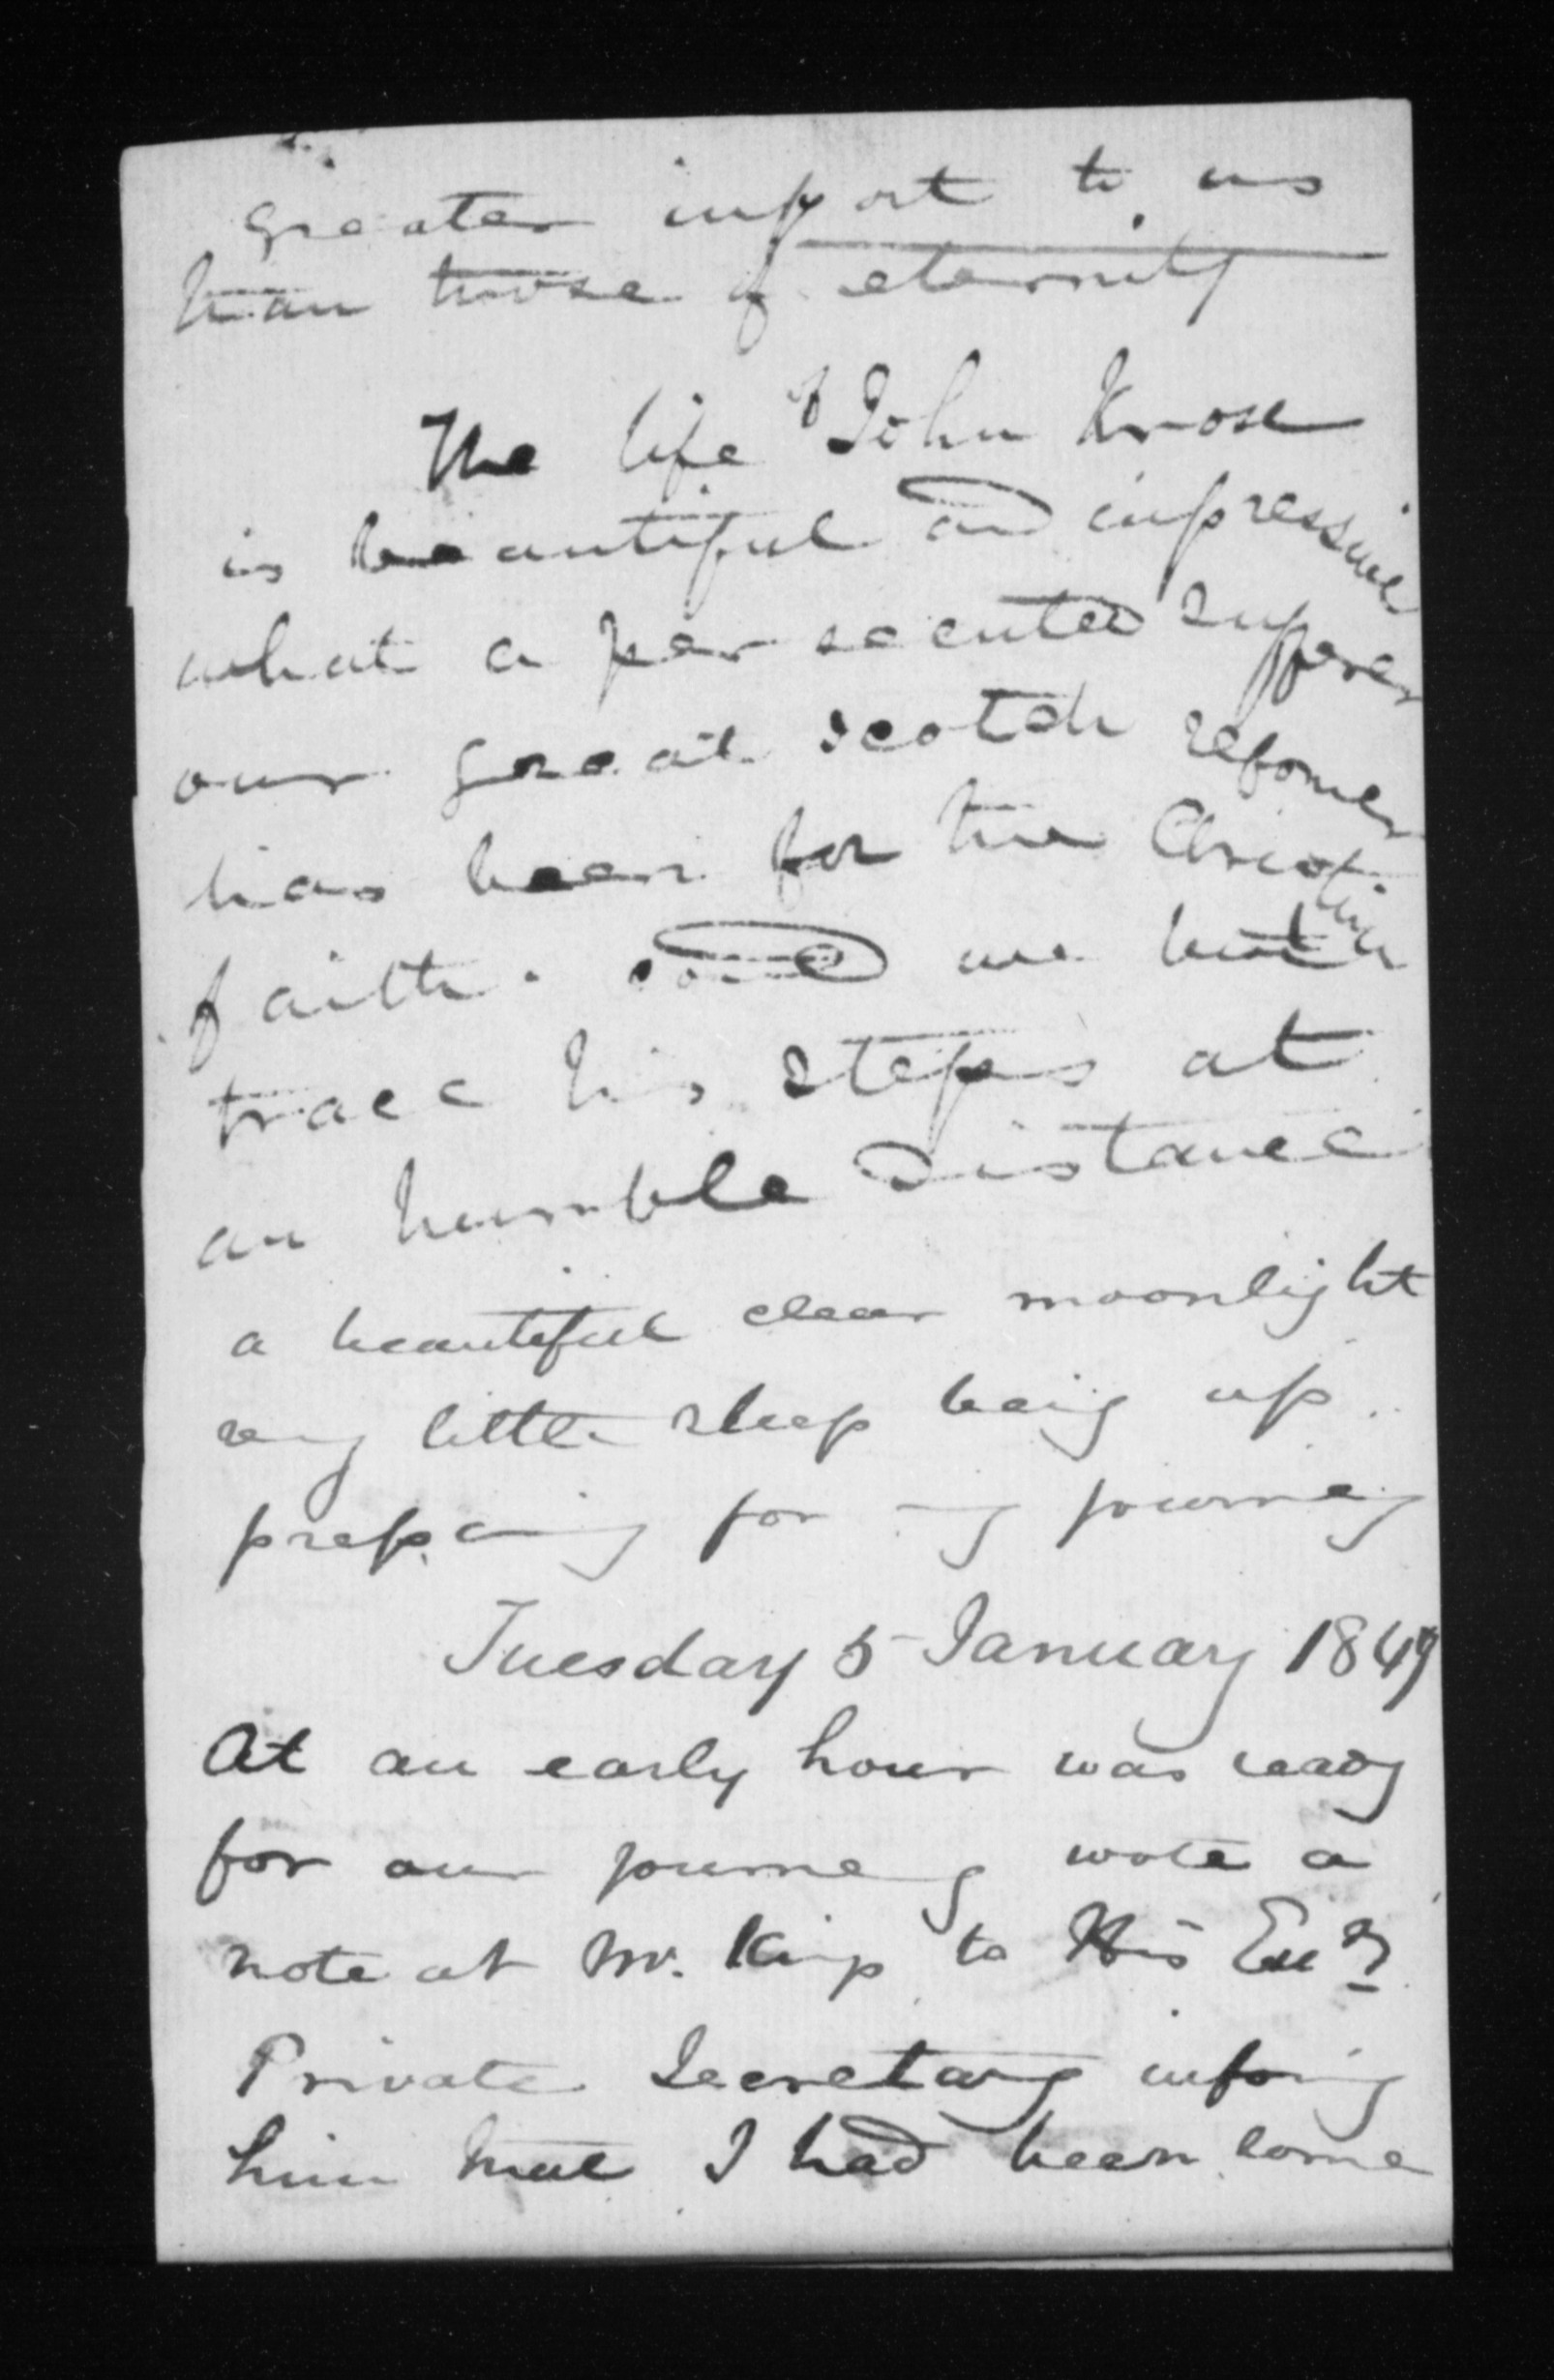 greater import to us
than those of eternity
The life of John Knox
is beautiful and impressive
what a persecuted sufferer
our great scotch reformer
has been for the Christian
faith. and we but
trace his steps at
an humble distance
a beautiful clear moonlight
very little sleep being up
preparing for my journey
Tuesday 5 January 1849
At an early hour was ready
for our journey wrote a
note at Mr. Kings to His Exy
Private Secretary informing
him that I had been some